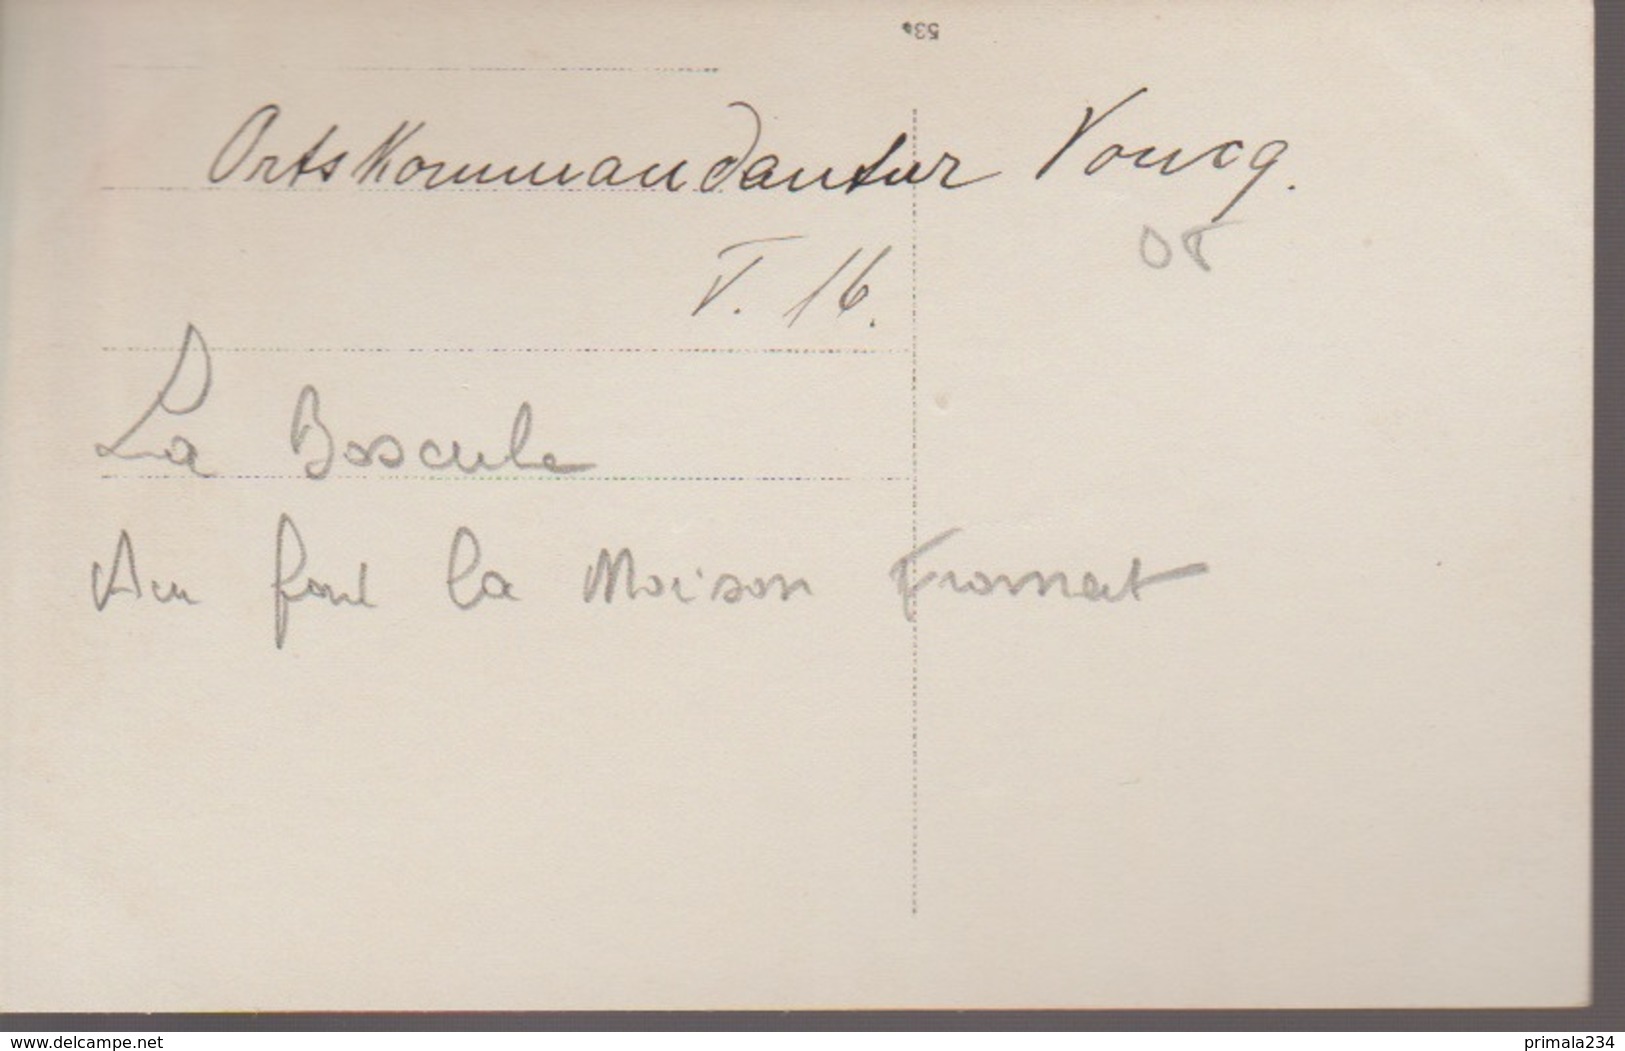 53*
OrtsKommandantur Voucq.
V. 16.
La Bascule
Au fond la Maison Fromart
www.delcampe.net
primala234